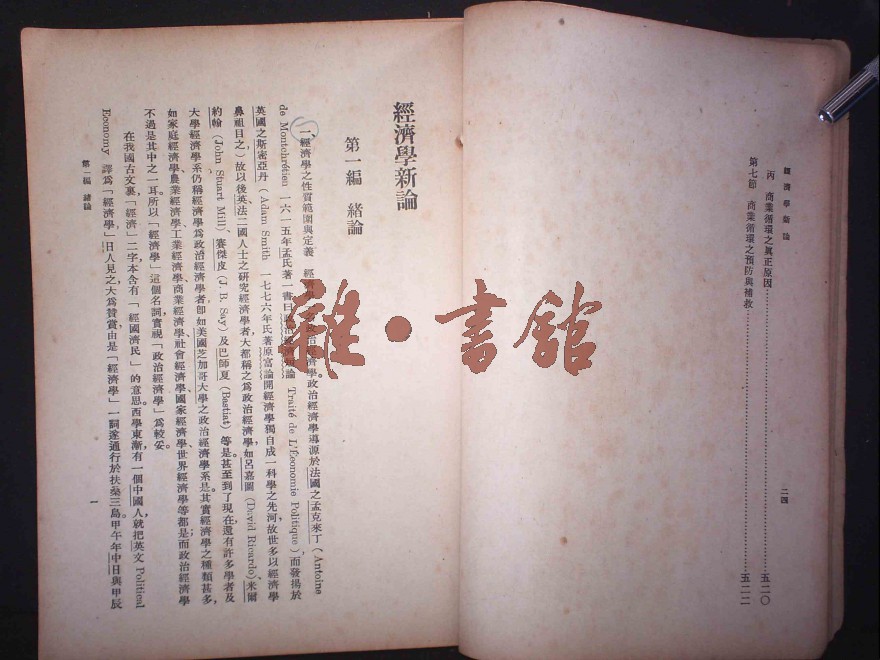 經濟學新論
丙 商業循環之眞正原因…………五二〇
第七節 商業循環之預防與補救…………五二二
二四
經濟學新論
第一編 緒論
一、經濟學之性質範圍與定義 經濟 政治經濟學政治經濟學導源於法國之孟克來丁(Antoine
de Montchrétieu 一六一五年孟氏著一書曰政治經濟 論 Traité de L'Économie Politique)而發揚於
英國之斯密亞丹(Adam Smith 一七七六年氏著原富論開經濟學獨自成一科學之先河故世多以經濟學
鼻祖目之)故以後英法二國人士之研究經濟學者大都稱之爲政治經濟學,如呂嘉圖(David Ricardo)、米爾
約翰(John Stuart Mill)、賽傑皮(J. B. Say)及巴師夏(Bastiat)等是。甚至到了現在還有許多學者及
大學經濟學系仍稱經濟學爲政治經濟學者卽如美國芝加哥大學之政治經濟學系是。其實經濟學之種類甚多,
如家庭經濟學、農業經濟學、工業經濟學、商業經濟學、社會經濟學、國家經濟學、世界經濟學等都是;而政治經濟學
不過是其中之一耳。所以「經濟學」這個名詞,實視「政治經濟學」爲較妥。
在我國古文裏,「經濟」二字本含有「經國濟民」的意思。西學東漸,有一個中國人,就把英文 Political
Economy 譯爲「經濟學」,日人見之,大爲贊賞,由是「經濟學」一詞遂通行於扶桑三島。甲午年中日與甲辰
第一編 緒論
一
雜·書館